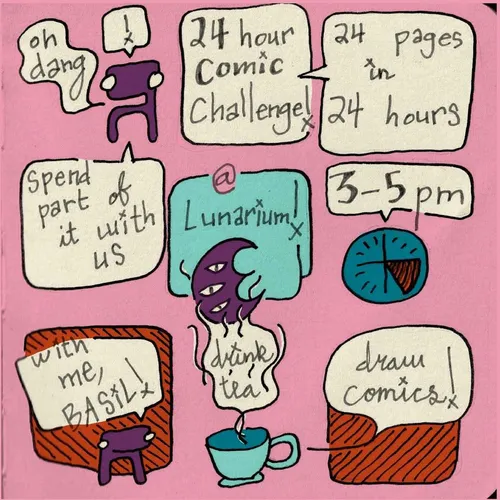 oh
dang
!
24 hour
Comic
Challenge!
24 pages
in
24 hours
Spend
part of
it with
us
@
Lunarium!
3-5pm
with
me,
BASiL!
drink
tea
draw
comics!